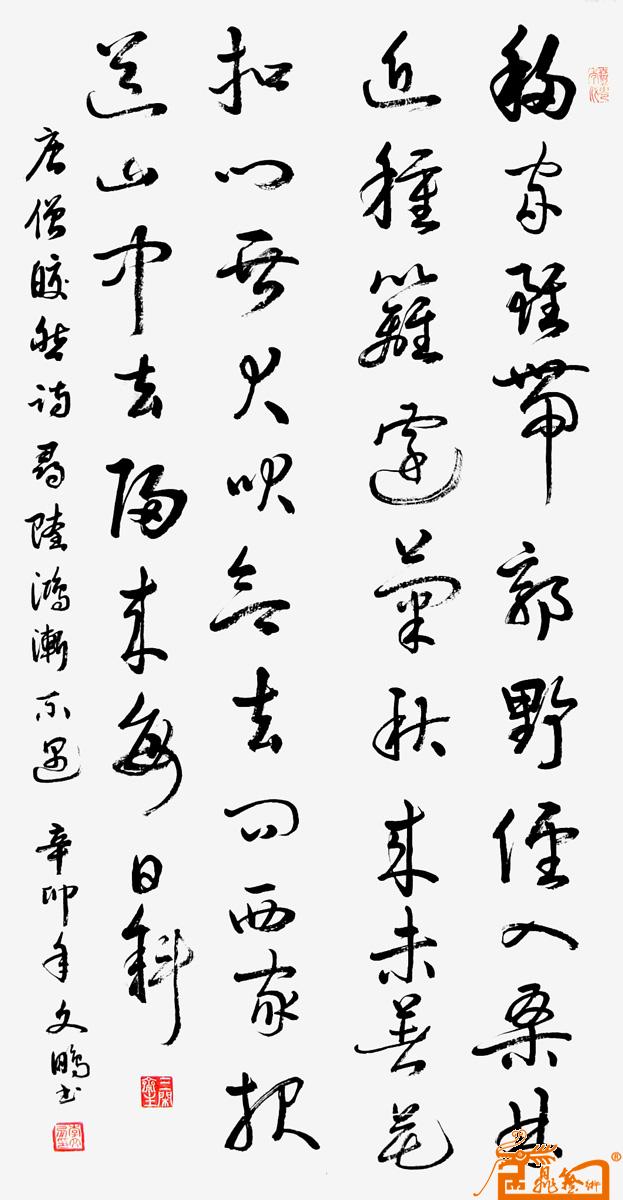 移家雖帶郭野徑入桑麻
近種籬邊菊秋來未著花
扣門無犬吠欲去問西家報
道山中去歸來每日斜
唐僧皎然詩尋陸鴻漸不遇 辛卯年文鵬書